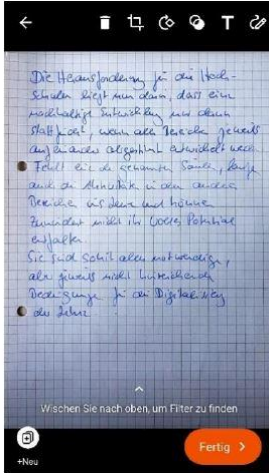 Die Herausforderung für die Hoch-
schulen liegt nun darin, dass eine
nachhaltige Entwicklung nur dann
stattfindet, wenn alle Bereiche jeweils
aufeinander abgestimmt entwickelt werd.
Fehlt eine der genannten Säulen,
auch die Aktivitäten in den anderen
Bereichen ins Leere und können
zumindest nicht ihr volles Potential
entfalten
Sie sind somit alles notwendige,
aber jeweils nicht hinreichende
Bedingungen für die Digitalisierung
der Lehre
Wischen Sie nach oben, um Filter zu finden
+Neu
Fertig >